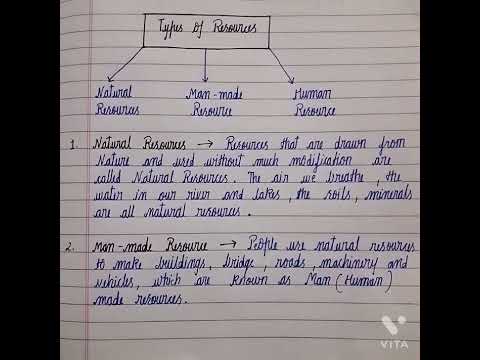 Types Of Resources
Natural Resources
Man-made Resource
Human Resource
1. Natural Resources → Resources that are drawn from
Nature and used without much modification are
called Natural Resources. The air we breathe, the
water in our river and lakes, the soils, minerals
are all natural resources.
2. Man-made Resource → People use natural resources
to make buildings, bridge, roads, machinery and
vehicles, which are known as Man (Human)
made resources.
VITA